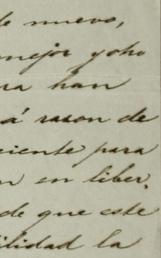 de nuevo,
mejor yoho
ra han
á razon de
ciente para
n en liber-
de que este
ilidad la